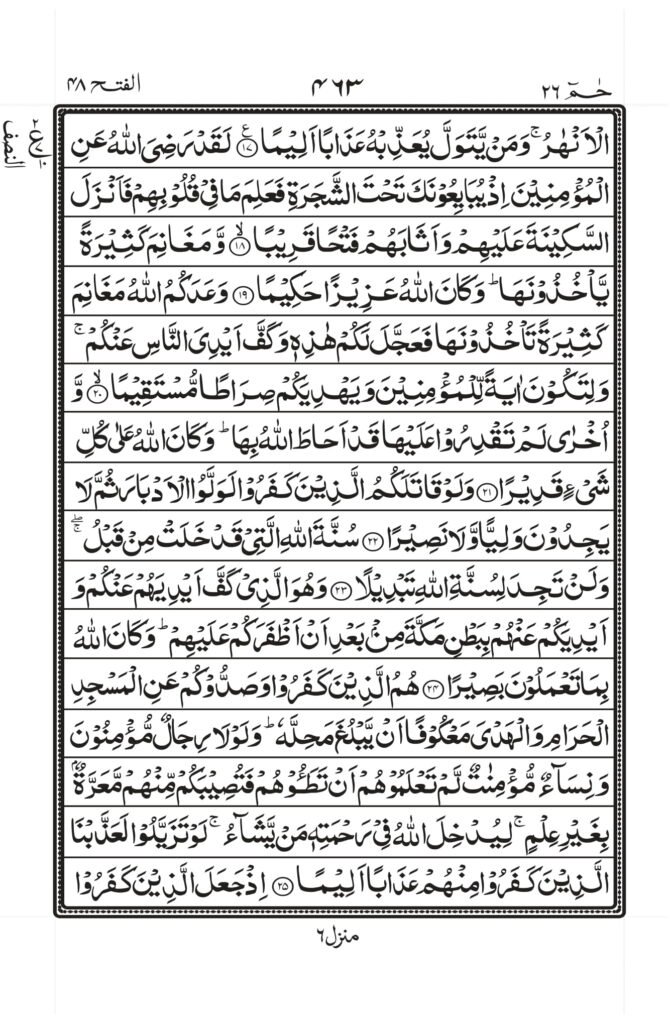 حٰمٓ ٢٦
٤٦٣
الفتح ٤٨
الْاَنْهٰرُ ۚ وَمَنْ يَّتَوَلَّ يُعَذِّبْهُ عَذَابًا اَلِيْمًا ۧ‏﴿١٧﴾ لَقَدْ رَضِىَ اللّٰهُ عَنِ
الْمُؤْمِنِيْنَ اِذْ يُبَايِعُوْنَكَ تَحْتَ الشَّجَرَةِ فَعَلِمَ مَا فِىْ قُلُوْبِهِمْ فَاَنْزَلَ
السَّكِيْنَةَ عَلَيْهِمْ وَاَثَابَهُمْ فَتْحًا قَرِيْبًا ۙ‏﴿١٨﴾ وَّمَغَانِمَ كَثِيْرَةً
يَّاْخُذُوْنَهَا ؕ وَكَانَ اللّٰهُ عَزِيْزًا حَكِيْمًا ﴿١٩﴾ وَعَدَكُمُ اللّٰهُ مَغَانِمَ
كَثِيْرَةً تَاْخُذُوْنَهَا فَعَجَّلَ لَكُمْ هٰذِهٖ وَكَفَّ اَيْدِىَ النَّاسِ عَنْكُمْ ۚ
وَلِتَكُوْنَ اٰيَةً لِّلْمُؤْمِنِيْنَ وَيَهْدِيَكُمْ صِرَاطًا مُّسْتَقِيْمًا ۙ‏﴿٢٠﴾ وَّ
اُخْرٰى لَمْ تَقْدِرُوْا عَلَيْهَا قَدْ اَحَاطَ اللّٰهُ بِهَا ؕ وَكَانَ اللّٰهُ عَلٰى كُلِّ
شَىْءٍ قَدِيْرًا ﴿٢١﴾ وَلَوْ قَاتَلَكُمُ الَّذِيْنَ كَفَرُوْا لَوَلَّوُا الْاَدْبَارَ ثُمَّ لَا
يَجِدُوْنَ وَلِيًّا وَّلَا نَصِيْرًا ﴿٢٢﴾ سُنَّةَ اللّٰهِ الَّتِىْ قَدْ خَلَتْ مِنْ قَبْلُ ۖۚ
وَلَنْ تَجِدَ لِسُنَّةِ اللّٰهِ تَبْدِيْلًا ﴿٢٣﴾ وَهُوَ الَّذِىْ كَفَّ اَيْدِيَهُمْ عَنْكُمْ وَ
اَيْدِيَكُمْ عَنْهُمْ بِبَطْنِ مَكَّةَ مِنْۢ بَعْدِ اَنْ اَظْفَرَكُمْ عَلَيْهِمْ ؕ وَكَانَ اللّٰهُ
بِمَا تَعْمَلُوْنَ بَصِيْرًا ﴿٢٤﴾ هُمُ الَّذِيْنَ كَفَرُوْا وَصَدُّوْكُمْ عَنِ الْمَسْجِدِ
الْحَرَامِ وَالْهَدْىَ مَعْكُوْفًا اَنْ يَّبْلُغَ مَحِلَّهٗ ؕ وَلَوْلَا رِجَالٌ مُّؤْمِنُوْنَ
وَنِسَآءٌ مُّؤْمِنٰتٌ لَّمْ تَعْلَمُوْهُمْ اَنْ تَطَئُوْهُمْ فَتُصِيْبَكُمْ مِّنْهُمْ مَّعَرَّةٌۢ
بِغَيْرِ عِلْمٍ ۚ لِيُدْخِلَ اللّٰهُ فِىْ رَحْمَتِهٖ مَنْ يَّشَآءُ ۚ لَوْ تَزَيَّلُوْا لَعَذَّبْنَا
الَّذِيْنَ كَفَرُوْا مِنْهُمْ عَذَابًا اَلِيْمًا ﴿٢٥﴾ اِذْ جَعَلَ الَّذِيْنَ كَفَرُوْا
النصف
منزل ٦